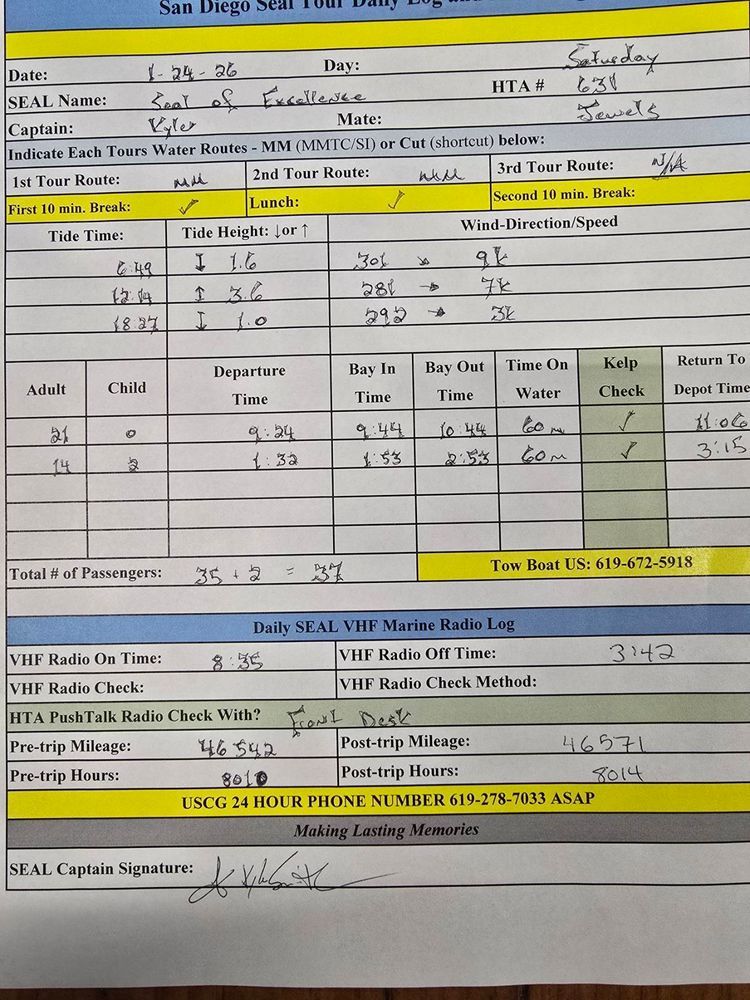 San Diego Seal Tour Daily Log and
Date: 1-24-26 Day: Saturday
SEAL Name: Seal of Excellence HTA # 631
Captain: Kyler Mate: Jewels
Indicate Each Tours Water Routes - MM (MMTC/SI) or Cut (shortcut) below:
1st Tour Route: MM 2nd Tour Route: MM 3rd Tour Route: N/A
First 10 min. Break: ✓ Lunch: ✓ Second 10 min. Break:
Tide Time: Tide Height: ↓or ↑ Wind-Direction/Speed
6:49 ↓ 1.6 301 → 9k
12:14 ↑ 3.6 281 → 7k
18:27 ↓ 1.0 292 → 3k
Adult Child Departure Time Bay In Time Bay Out Time Time On Water Kelp Check Return To Depot Time
21 0 9:24 9:44 10:44 60m ✓ 11:06
14 2 1:32 1:53 2:53 60m ✓ 3:15
Total # of Passengers: 35 + 2 = 37 Tow Boat US: 619-672-5918
Daily SEAL VHF Marine Radio Log
VHF Radio On Time: 8:35 VHF Radio Off Time: 3:42
VHF Radio Check: VHF Radio Check Method:
HTA PushTalk Radio Check With? Front Desk
Pre-trip Mileage: 46542 Post-trip Mileage: 46571
Pre-trip Hours: 8010 Post-trip Hours: 8014
USCG 24 HOUR PHONE NUMBER 619-278-7033 ASAP
Making Lasting Memories
SEAL Captain Signature: